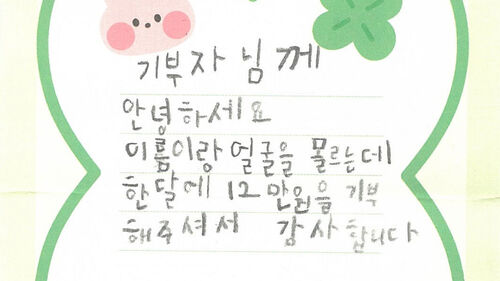 기부자님께
안녕하세요
이름이랑 얼굴을 몰르는데
한달에 12만원을 기부
해주셔서 감사합니다